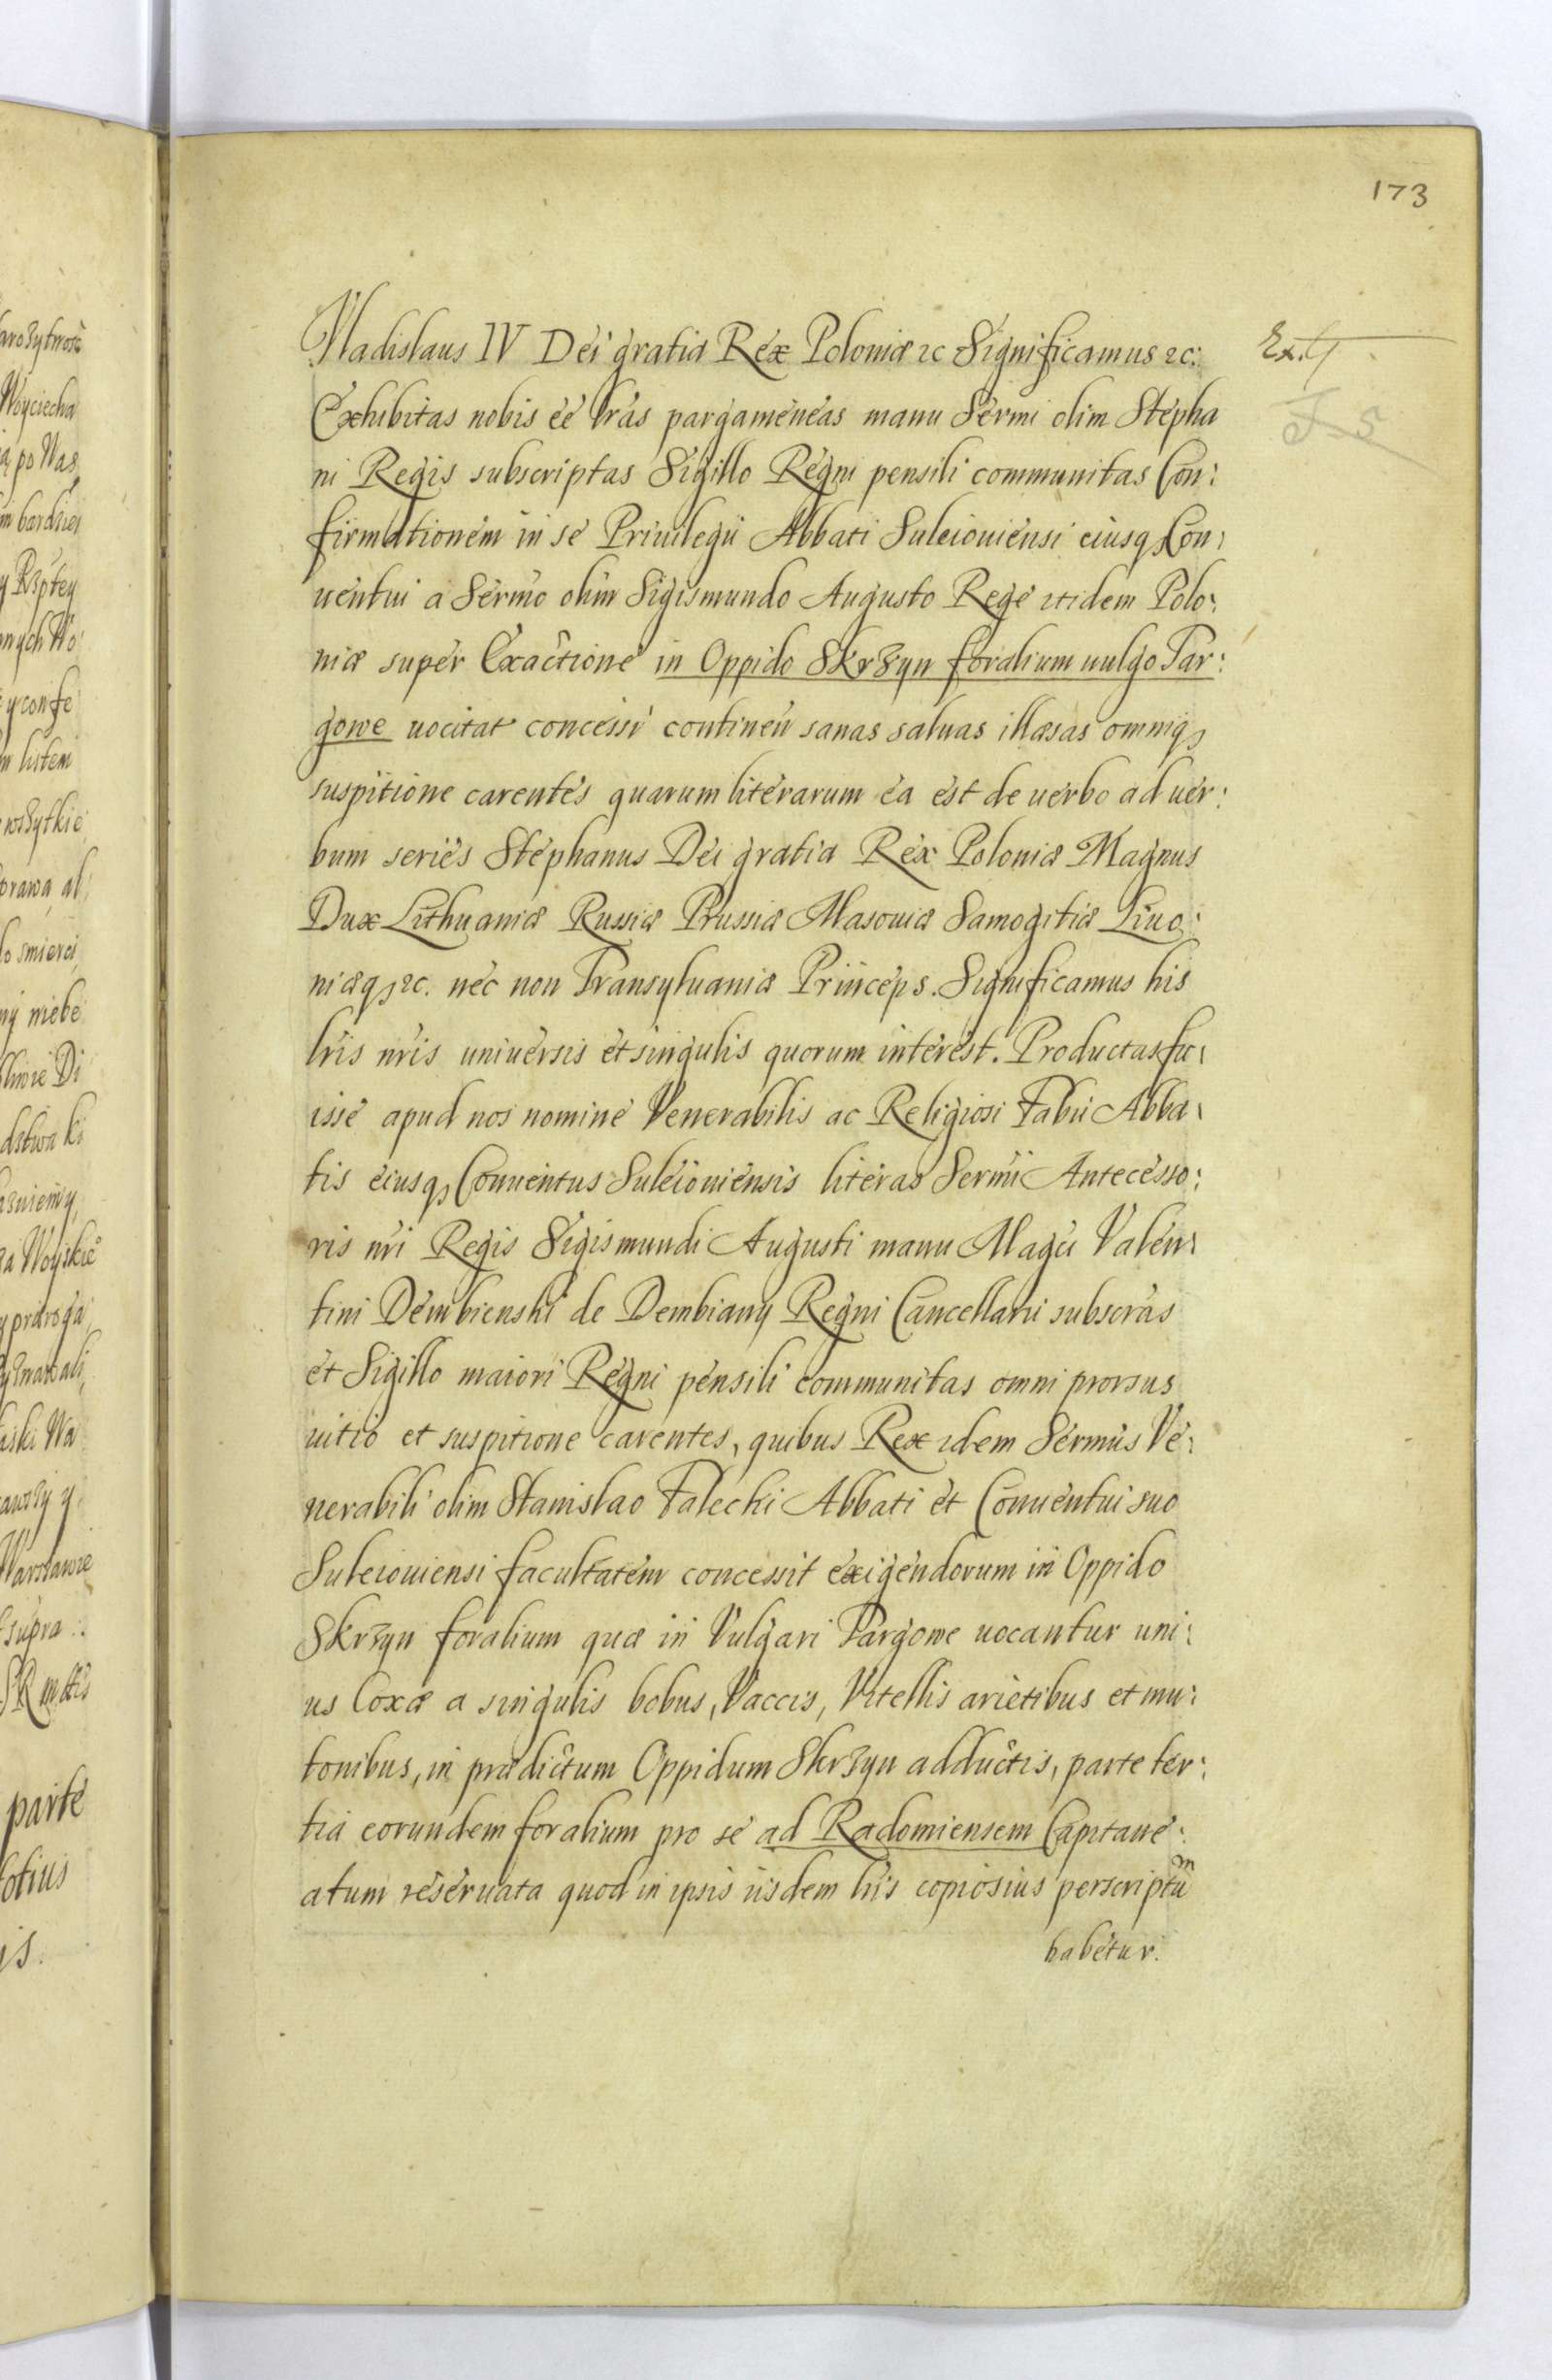 173
Vladislaus IV Dei gratia Rex Poloniæ &c Significamus &c:
Exhibitas nobis eẽ lr̃as pargameneas manu Serm̃i olim Stepha
ni Regis subscriptas Sigillo Regni pensili communitas Con:
firmationem in se Priuilegii Abbati Suleiouiensi eiusq₃ Con:
uentui a Serm̃o olim Sigismundo Augusto Rege itidem Polo:
niæ super Exactione in Oppido Skrzyn foralium uulgo Tar:
gowe uocitat concessi continen̄ sanas saluas illæsas omniq₃
suspitione carentes quarum literarum ea est de uerbo ad uer:
bum series Stephanus Dei gratia Rex Poloniæ Magnus
Dux Lithuaniæ Russiæ Prussiæ Masouiæ Samogitiæ Liuo:
niæq₃ &c. nec non Transyluaniæ Princeps. Significamus his
lr̃is nr̃is uniuersis et singulis quorum interest. Productas fu:
isse apud nos nomine Venerabilis ac Religiosi Fabii Abba:
tis eiusq₃ Conuentus Suleiouiensis literas Serm̃i Antecesso:
ris nr̃i Regis Sigismundi Augusti manu Magc̃i Valen:
tini Dembienski de Dembiany Regni Cancellarii subscr̃as
et Sigillo maiori Regni pensili communitas omni prorsus
uitio et suspitione carentes, quibus Rex idem Serm̃us Ve:
nerabili olim Stanislao Falecki Abbati et Conuentui suo
Suleiouiensi facultatem concessit exigendorum in Oppido
Skrzyn foralium quæ in Vulgari Targowe uocantur uni:
us Coxæ a singulis bobus, Vaccis, Vitellis arietibus et mu:
tonibus, in prædictum Oppidum Skrzyn adductis, parte ter:
tia eorundem foralium pro se ad Radomiensem Capitane:
atum reseruata quod in ipsis iisdem lr̃is copiosius perscriptũ
habetur.